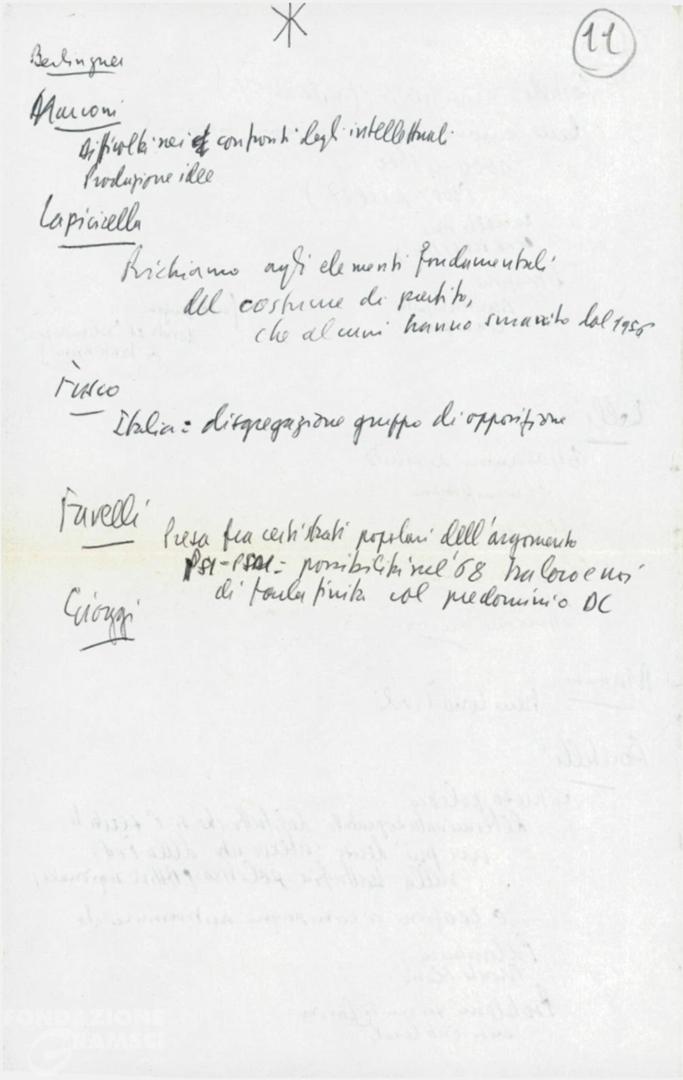 11
Berlinguer
Marconi
Difficoltà nei confronti degli intellettuali
Produzione idee
Lapiccirella
Richiamo agli elementi fondamentali
del costume di partito,
che alcuni hanno smarrito dal 1956
Fusco
Italia = disgregazione gruppo di opposizione
Favelli
Presa fra certi strati popolari dell'argomento
PSI-PSDI = possibilità nel '68 tra loro e noi
di farla finita col predominio DC
Gioggi
FONDAZIONE
GRAMSCI